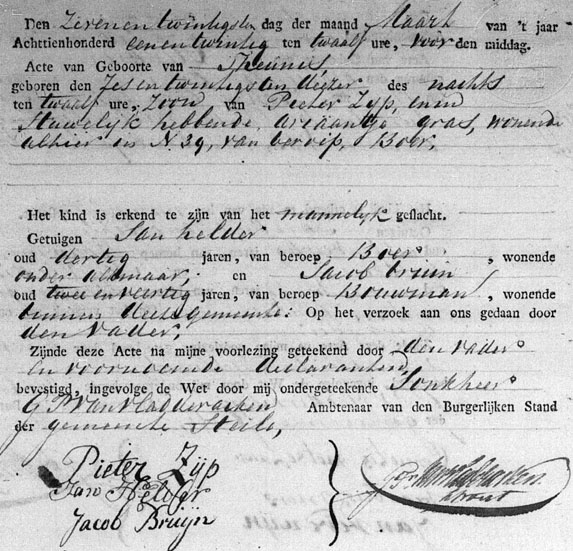 Den Zevenentwintigsten dag der maand Maart van 't jaar
Achttienhonderd eenentwintig ten twaalf ure, voor den middag.
Acte van Geboorte van Theunis,
geboren den Zesentwintigsten dezer des nachts
ten twaalf ure, zoon van Pieter Zijp, en in
huwelijk hebbende, ariaantje gras, wonende
alhier in N 39, van beroep, Boer,
Het kind is erkend te zijn van het mannelijk geslacht.
Getuigen Jan helder
oud dertig jaren, van beroep Boer, wonende
onder alkmaar, en Jacob bruin
oud twee en veertig jaren, van beroep Bouwman, wonende
binnen deese gemeente: Op het verzoek aan ons gedaan door
den vader,
Zijnde deze Acte na mijne voorlezing geteekend door den vader
en voornoemde declaranten
bevestigd, ingevolge de Wet door mij ondergeteekende Jonkheer
G P van vladderacken Ambtenaar van den Burgerlijken Stand
der gemeente Heilo,
Pieter Zijp
Jan Helder
Jacob Bruijn